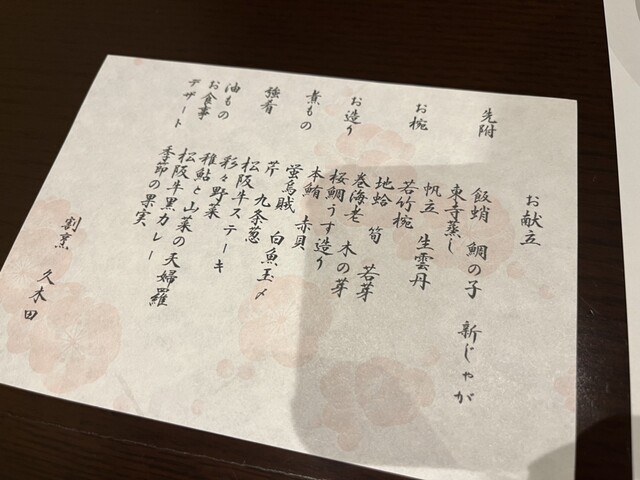 お献立
先附
飯蛸 鯛の子 新じゃが
東寺蒸し
帆立 生雲丹
お椀
若竹椀
地蛤 筍 若芽
巻海老 木の芽
お造り
桜鯛うす造り
本鮪 赤貝
煮もの
蛍烏賊 白魚玉〆
芹 九条葱
強肴
松阪牛ステーキ
彩々野菜
油もの
稚鮎と山菜の天婦羅
お食事
松阪牛黒カレー
デザート
季節の果実
割烹 久木田